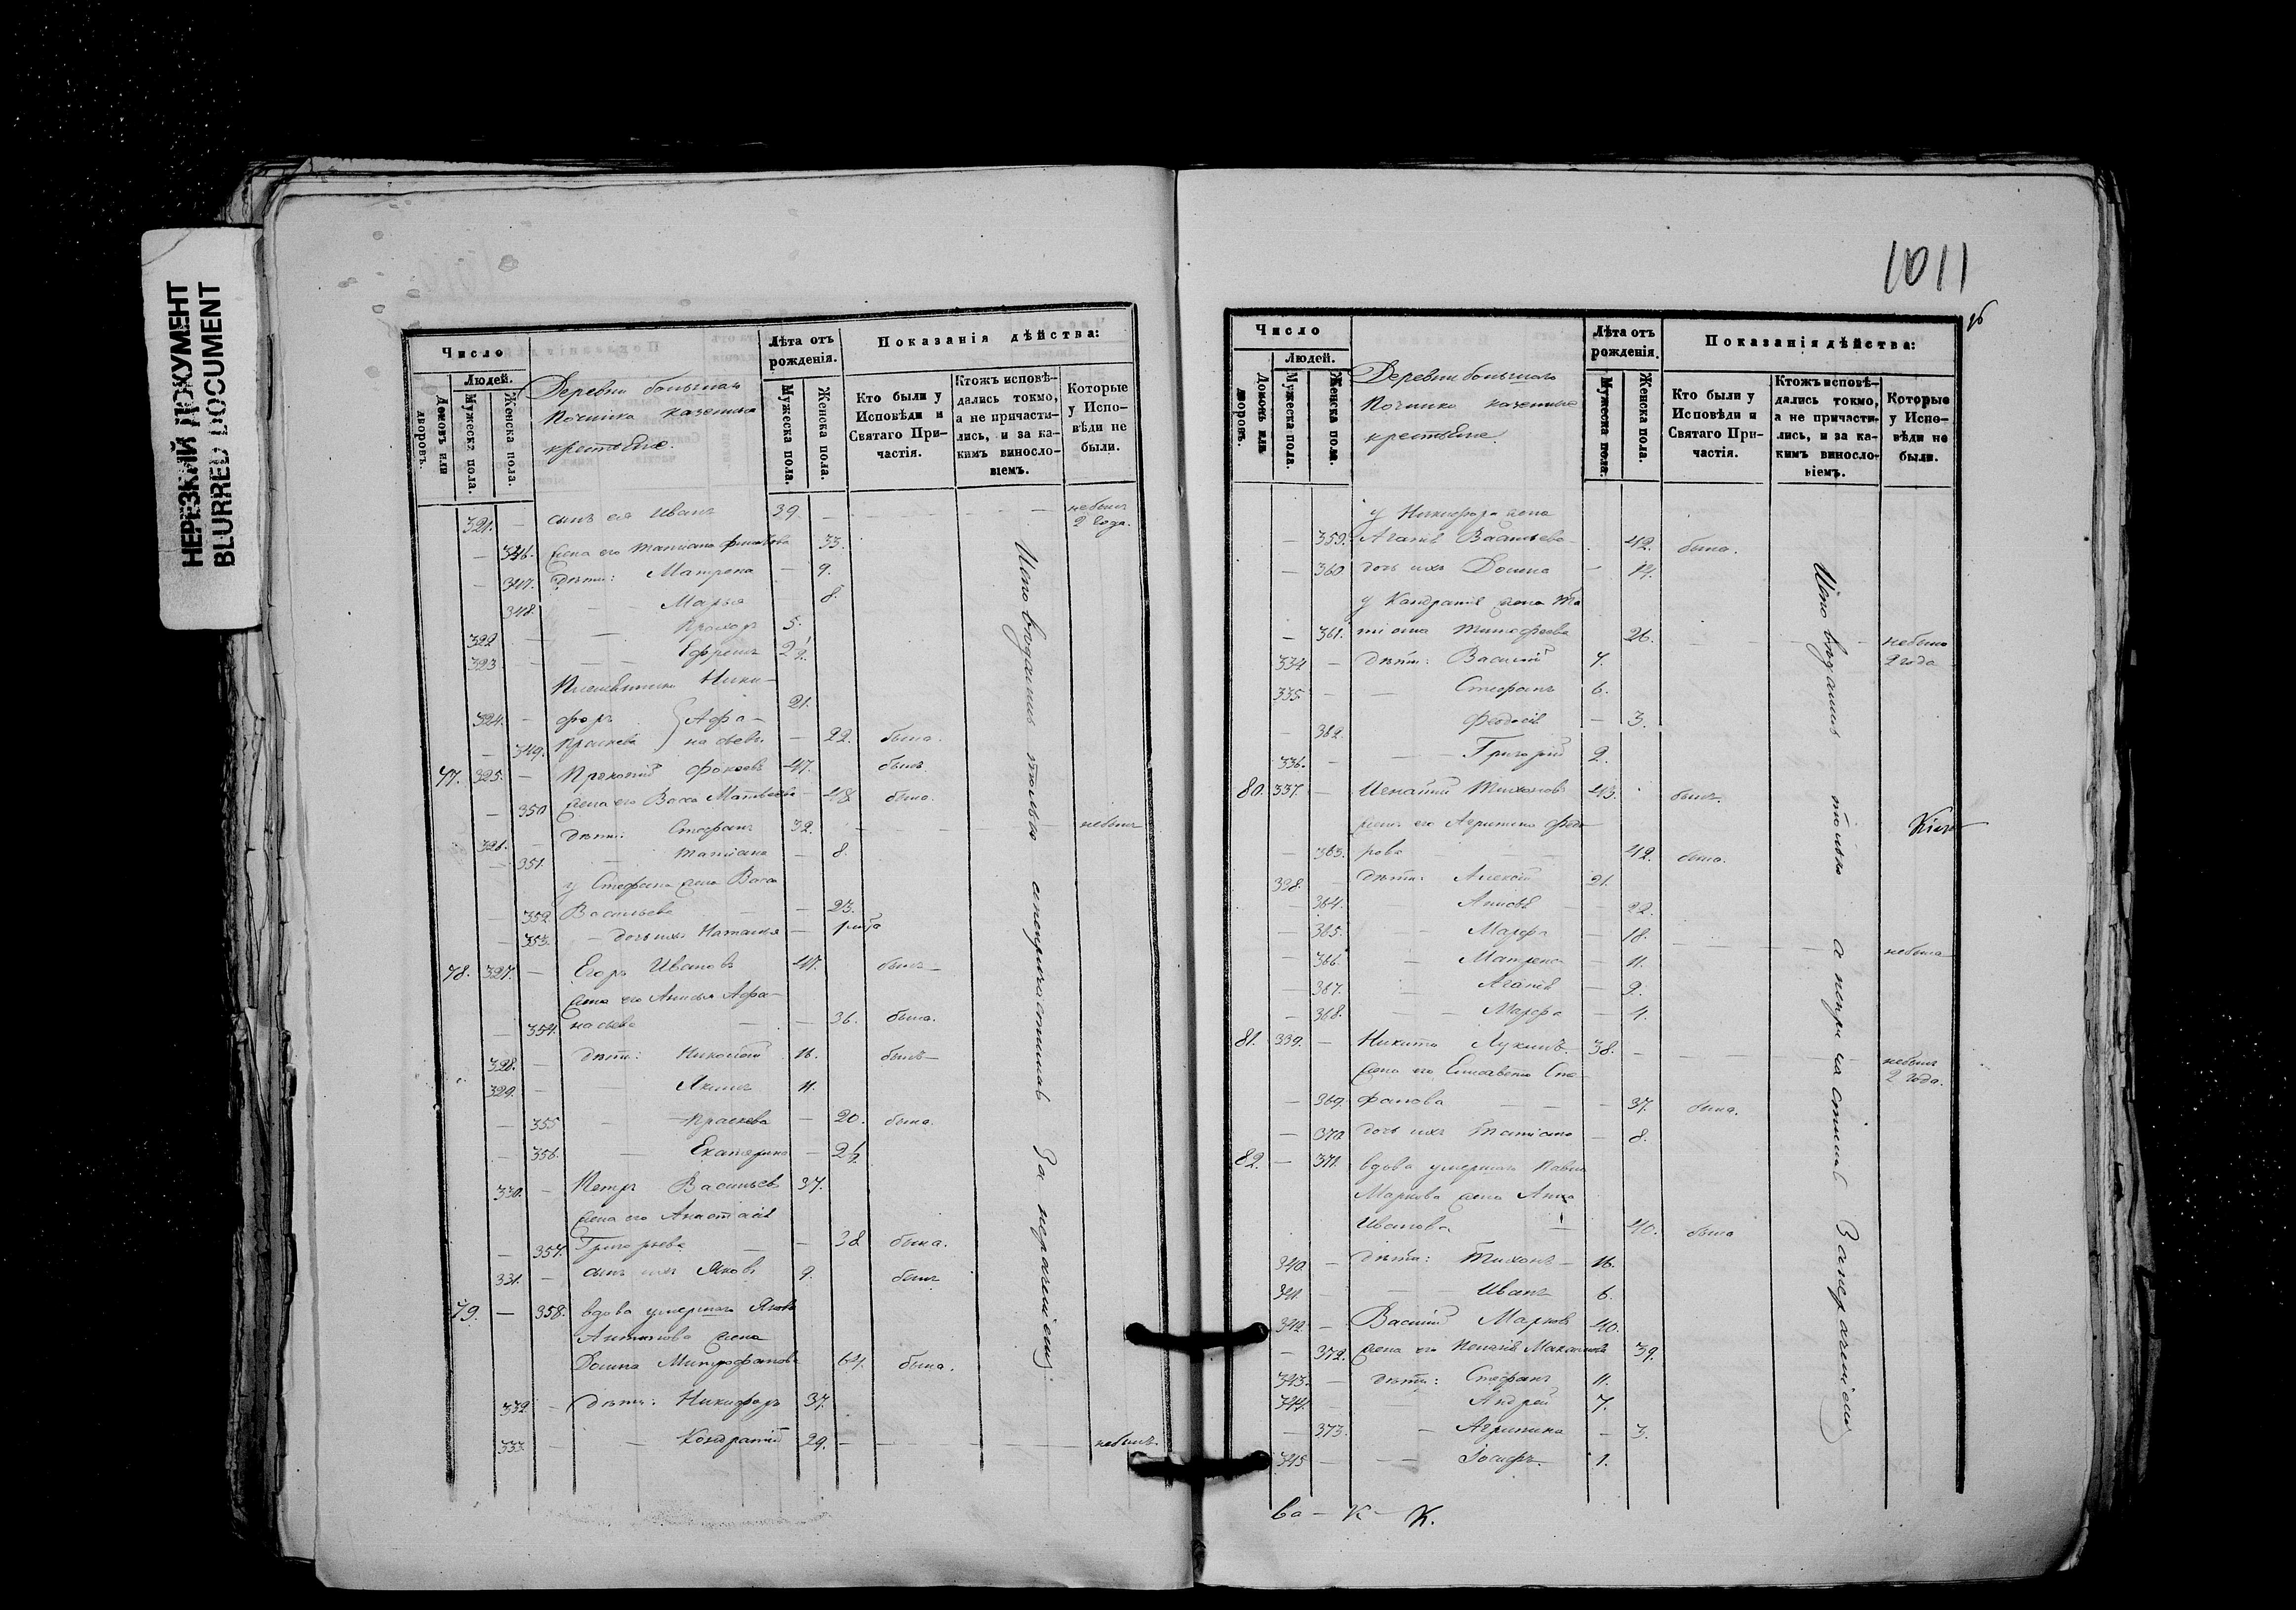 НЕРЕЗКИЙ ДОКУМЕНТ
BLURRED DOCUMENT
Число
Людей.
Домовъ или дворовъ.
Мужеска пола.
Женска пола.
Деревни большаго
Починка казенные
крестьяне.
Лѣта отъ рожденія.
Мужеска пола.
Женска пола.
Показанія дѣйства:
Кто были у Исповѣди и Святаго Причастія.
Ктожъ исповѣдались токмо, а не причастились, и за какимъ винословіемъ.
Которые у Исповѣди не были.
321. — сынъ ея Иванъ 39. — небылъ 2 года.
— 346. жена его Татіана 33.
— 347. дѣти: Матрена — 9.
348. — Марья 8.
322 — — Прохоръ 5.
323 — — Ефремъ 2½.
Племянники Ники-
324. — форъ } Афа- 21.
— 349. Праскева } насьевы — 22. была.
77. 325. — Прокопій Фокеевъ 47. былъ.
— 350 жена его Васса Матвѣева — 48 была.
326. — дѣти: Стефанъ 32. — небылъ
— 351. — Татіана — 8.
у Стефана жена Васса
— 352. Васильева — — 23.
— 353. — дочь ихъ Наталья —
78. 327. — Егоръ Ивановъ 47. былъ
жена его Анисья Афа-
— 354. насьева — — 36. была.
328. — дѣти: Николай 16. былъ
329. — — Якимъ 11.
— 355 — Праскева — 20. была.
— 356. — Екатерина — 2½
330. — Петръ Васильевъ 37.
жена его Анастасія
— 357. Григорьева — — 38 была.
331. — сынъ ихъ Яковъ 9. былъ
79. — 358. вдова умершаго Якова
Антипова жена
Домна Митрофанова 64. была.
332. — дѣти: Никифоръ 37.
333. — — Кондратій 29. — небылъ.
Исповѣдались только а непричастились За нераченіемъ.
1011
Число
Людей.
Домовъ или дворовъ.
Мужеска пола.
Женска пола.
Деревни большаго
Починка казенные
крестьяне.
Лѣта отъ рожденія.
Мужеска пола.
Женска пола.
Показанія дѣйства:
Кто были у Исповѣди и Святаго Причастія.
Ктожъ исповѣдались токмо, а не причастились, и за какимъ винословіемъ.
Которые у Исповѣди не были.
у Никифора жена
— 359. Агапія Васильева — 42. была.
— 360 дочь ихъ Домна — 14.
у Кандратія жена Та
— 361. тіана Тимофеева 26. — небыла 2 года
334 — дѣти: Василій 7.
335 — — Стефанъ 6.
— 362. Феодосія — 3.
336. — — Григорій 2.
80. 337. — Игнатій Тихоновъ 43. былъ.
жена его Агрипина Федо
— 363. рова 42. была.
338. — дѣти: Алексѣй 21.
— 364. — — 22.
— 365. — Марфа — 18. — небыла
— 366. — Матрена — 11.
— 367. — Агапія — 9.
— 368. — Марфа — 4.
81. 339. — Никита Лукинъ 38. — небылъ 2 года.
жена его Елисавета Сте
— 369. фанова — 37. была.
— 370 дочь ихъ Татіана — 8.
82. — 371. вдова умершаго Павла
Маркова жена Анна
Иванова — 40. была
340 — дѣти: Тихонъ — 16.
341. — — Иванъ 6.
342. — Василій Марковъ 40.
— 372. жена его Пелагія 39.
343. — дѣти: Стефанъ 11.
344. — Андрей 7.
— 373. — Агрипина — 3.
345 — — Іосифъ. 1.
Исповѣдались только а непричастились За нераченіемъ
ва — К — К.